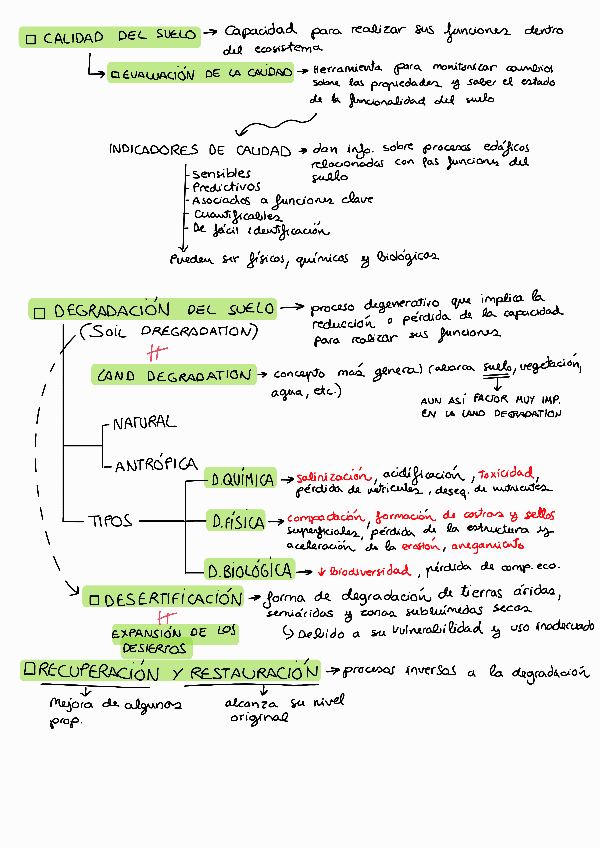 □ CALIDAD DEL SUELO → Capacidad para realizar sus funciones dentro
del ecosistema
□ EVALUACIÓN DE LA CALIDAD → Herramienta para monitorizar cambios
sobre las propiedades y saber el estado
de la funcionalidad del suelo
INDICADORES DE CALIDAD → dan info. sobre procesos edáficos
relacionados con las funciones del
suello
- Sensibles
- Predictivos
- Asociados a funciones clave
- Cuantificables
- De fácil identificación
Pueden ser físicos, químicos y biológicos
□ DEGRADACIÓN DEL SUELO → proceso degenerativo que implica la
reducción o pérdida de la capacidad
para realizar sus funciones
(SOIL DREGRADATION)
≠
LAND DEGRADATION → concepto más general (abarca suelo, vegetación,
agua, etc.)
AUN ASÍ FACTOR MUY IMP.
EN LA LAND DEGRADATION
NATURAL
ANTRÓPICA
TIPOS
D.QUÍMICA → salinización, acidificación, toxicidad,
pérdida de nutrientes, deseq. de nutrientes
D.FÍSICA → compactación, formación de costras y sellos
superficiales, pérdida de la estructura y
aceleración de la erosión, anegamiento
D.BIOLÓGICA → ↓ biodiversidad, pérdida de comp. eco.
□ DESERTIFICACIÓN → forma de degradación de tierras áridas,
semiáridas y zonas subhúmedas secas
↳ Debido a su vulnerabilidad y uso inadecuado
≠
EXPANSIÓN DE LOS
DESIERTOS
□ RECUPERACIÓN Y RESTAURACIÓN → procesos inversos a la degradación
Mejora de algunas
prop.
alcanza su nivel
original